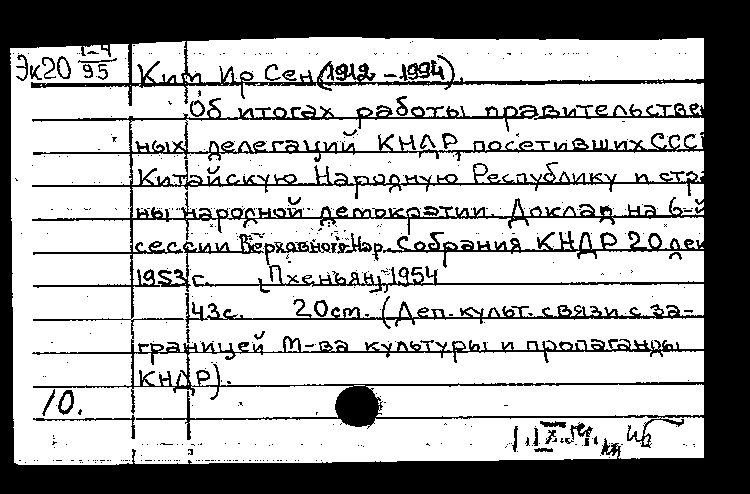 Эк20 1-4/95 Ким Ир Сен (1912-1994).
Об итогах работы правительствен
ных делегаций КНДР, посетивших СССР
Китайскую Народную Республику и стра
ны народной демократии. Доклад на 6-й
сессии Верховного Нар. Собрания КНДР 20 дек
1953 г. [Пхеньян], 1954
43 с. 20 cm. (Деп. культ. связи с за-
границей М-ва культуры и пропаганды
КНДР).
10.